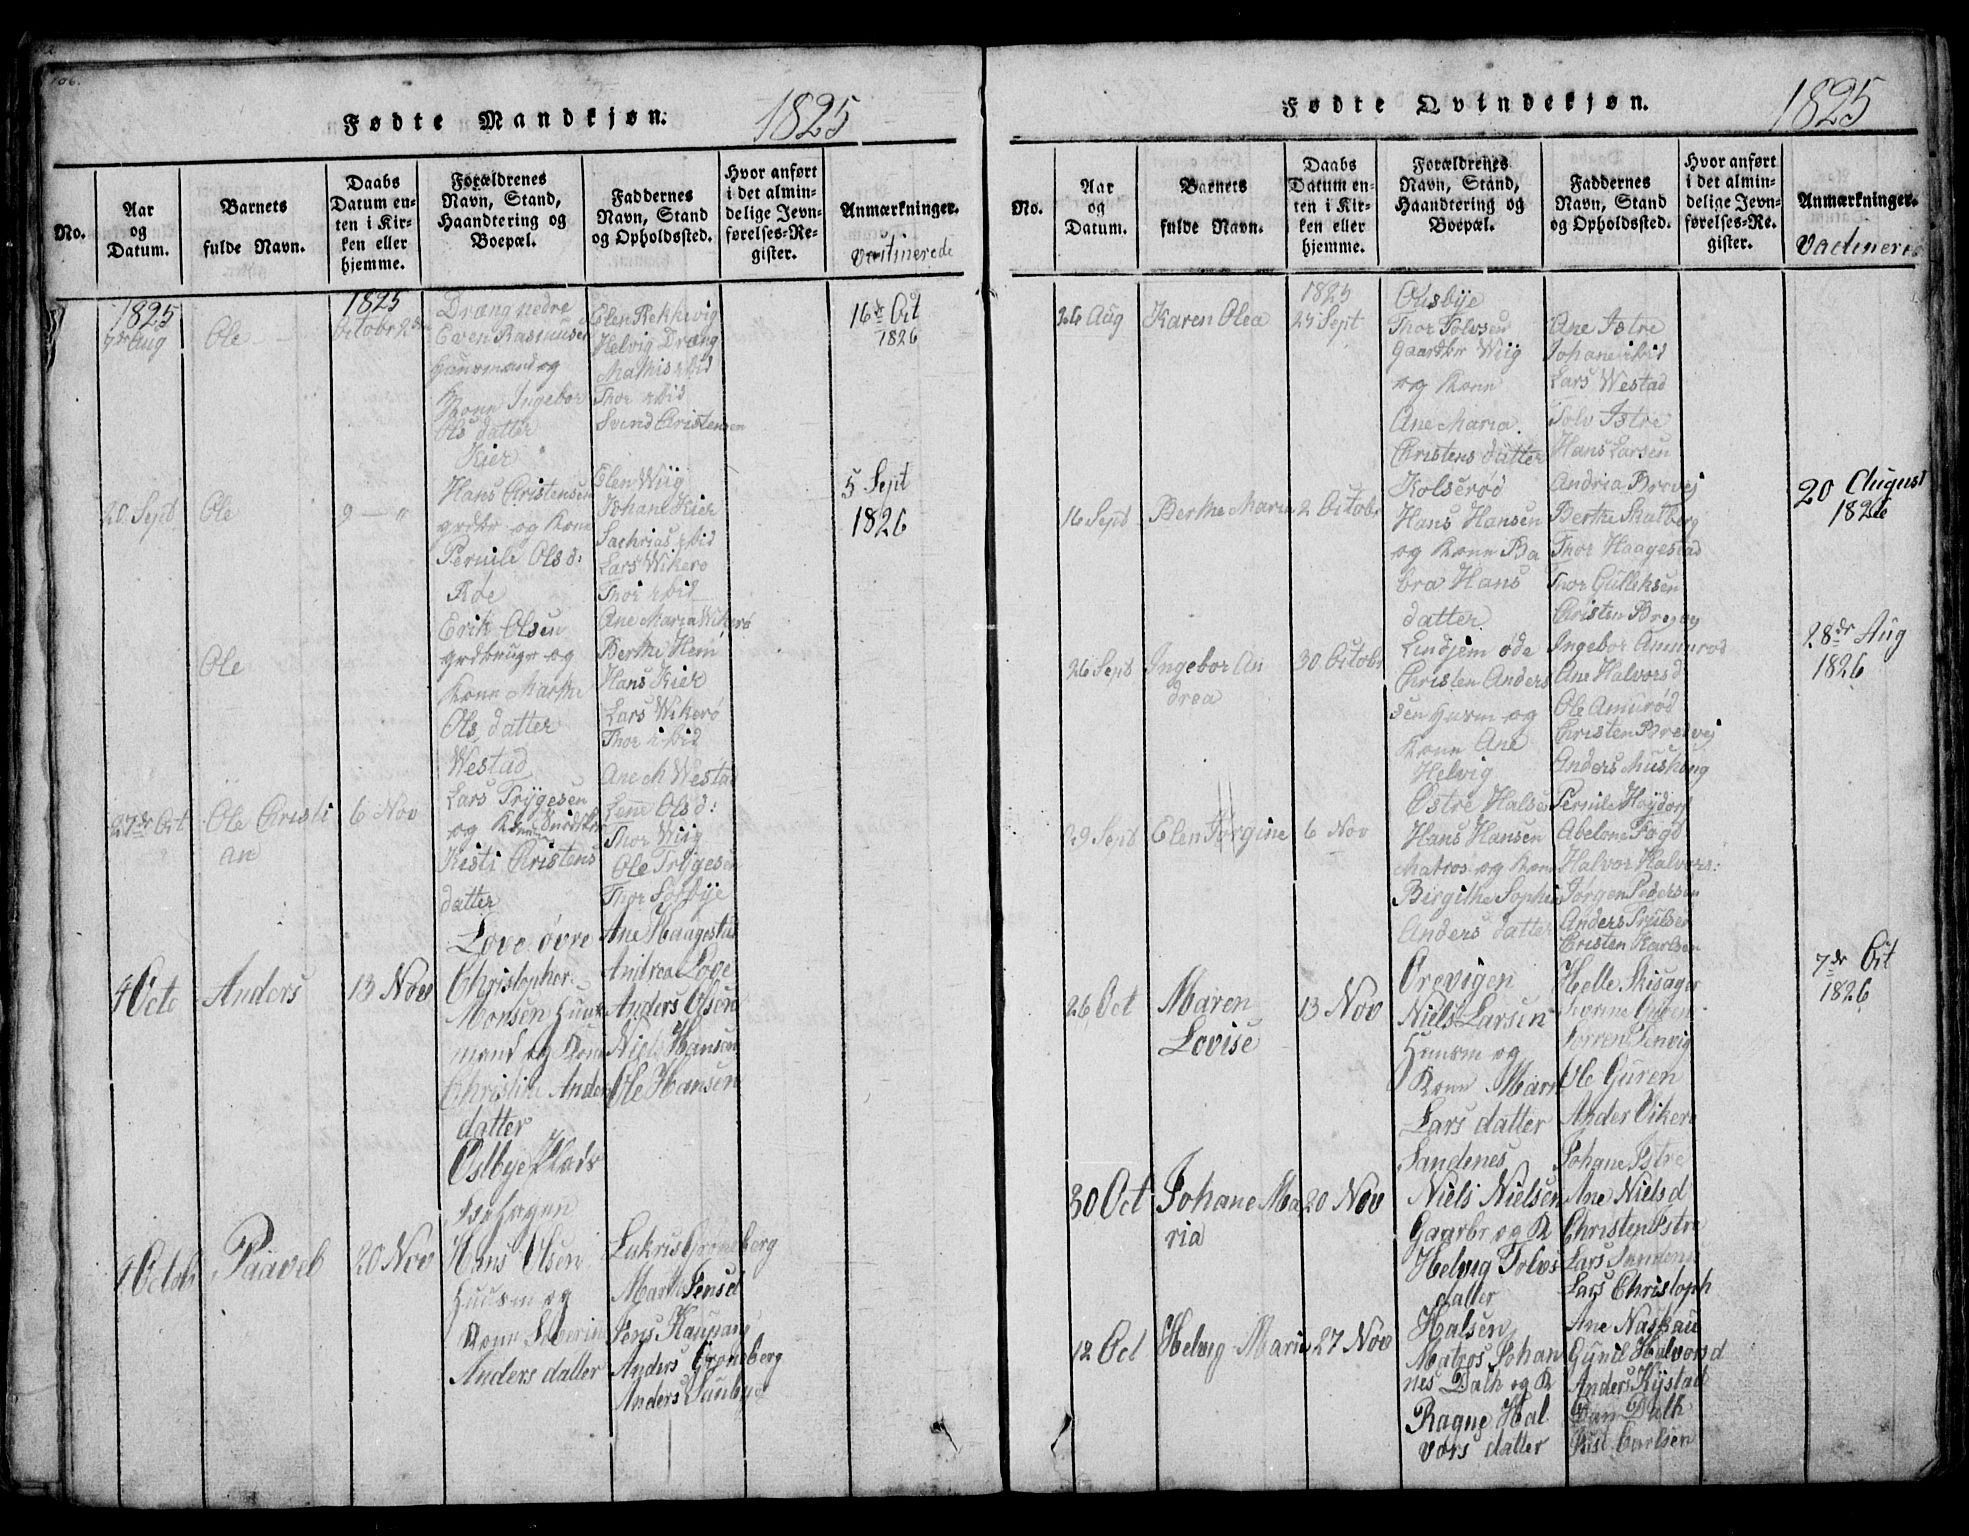 106.
Fødte Mandkjøn.
1825
No.
Aar
og
Datum.
Barnets
fulde Navn.
Daabs
Datum en-
ten i Kir-
ken eller
hjemme.
Forældrenes
Navn, Stand,
Haandtering og
Boepæl.
Faddernes
Navn, Stand
og Opholdssted.
Hvor anført
i det almin-
delige Jevn-
førelses-Re-
gister.
Anmærkninger.
1825
Aug
Ole
1825
Octobr 2
Dræng nedre
Even Rasmusen
Huusmand og
Kone Ingebor
Ols datter
Elen Rekkevig
Helvig Dræng
Mathis ibid
Thor ibid
Svend Cristensen
16 Oct
1826
20 Sept
Ole
9 — "
Kier
Hans Cristensen
grdbr og Kone
Pernile Olsd:
Elen Wiig
Johane Kier
Sachrias ibid
Lars Wikerø
Thor ibid
5 Sept
1826
Ole
Røe
Erik Olsen
grdbruger og
Kone Marthe
Ols datter
Ane Maria Wikerø
Berthe Hem
Hans Kier
Lars Wikerø
Thor ibid
27 Oct
Ole Cristi
an
6 Nov
Westad
Lars Trygesen
og Kone
Kisti Cristens
datter
Ane M Westad
Lene Olsd:
Thor Wiig
Ole Trygesen
4 Octo
Anders
13 Nov
Love øvre
Christopher
Monsen Huus
mand og Kone
Christine Anders
datter
Ane Haagestad
Andrea Love
Anders Olsen
Niels Hansen
Ole Hansen
Octobr
Paavel
20 Nov
Østbye Plads
Hans Olsen
Huusm og
Kone Severine
Anders datter
Lukris Grønsberg
Marthe Jensd
Jens Kaupang
Anders Grønsberg
Anders Saubye
Fødte Qvindekjøn.
1825
No.
Aar
og
Datum.
Barnets
fulde Navn.
Daabs
Datum en-
ten i Kir-
ken eller
hjemme.
Forældrenes
Navn, Stand,
Haandtering og
Boepæl.
Faddernes
Navn, Stand
og Opholdssted.
Hvor anført
i det almin-
delige Jevn-
førelses-Re-
gister.
Anmærkninger.
26 Aug
Karen Olea
1825
25 Sept
Ousbye
Thor Tolvsen
Gaardbr Wiig
og Kone
Ane Maria
Christens datter
Ane Istre
Johane ibid
Lars Westad
Tolv Istre
Hans Larsen
16 Sept
Berthe Maria
2 Octobr
Kolserød
Hans Hansen
og Kone Ba
bra Hans
datter
Andria Brevej
Berthe Skalberg
Thor Haagestad
Thor Gulleksen
20 August
1826
26 Sept
Ingebor An
drea
30 Octobr
Lindjem øde
Christen Anders
sen Husm og
Kone Ane
Helvig
Ingebor Amunrød
Ane Halvorsd
Ole Amunrød
Christen Bredvej
28 Aug
1826
29 Sept
Elen Jørgine
6 Nov
Østre Halsen
Hans Hansen
Matros og Kone
Birgithe Sophie
Anders datter
Pernile Høydorp
Abelone Fogd
Halvor Halvors:
Jørgen Pedersen
Cristen Karlsen
26 Oct
Maren
Lovise
13 Nov
Orevigen
Niels Larsen
Huusm og
Kone Maren
Lars datter
Helle Skisager
Ole Guren
Ander Vikerø
7 Oct
1826
30 Oct
Johane Ma
ria
20 Nov
Sandenes
Niels Nielsen
Gaarbr og K
Helvig Tolvs
datter
Johane Istre
Ane Nielsd
Christen Istre
Lars Sandenes
Lars Christoph
12 Oct
Helvig Maria
27 Nov
Halsen
Matros Johan
nes Dalk og K
Ragne Hal
vors datter
Ane Naskau
Gunil Halvorsd
Anders Rystad
Dalk
Just Carlsen